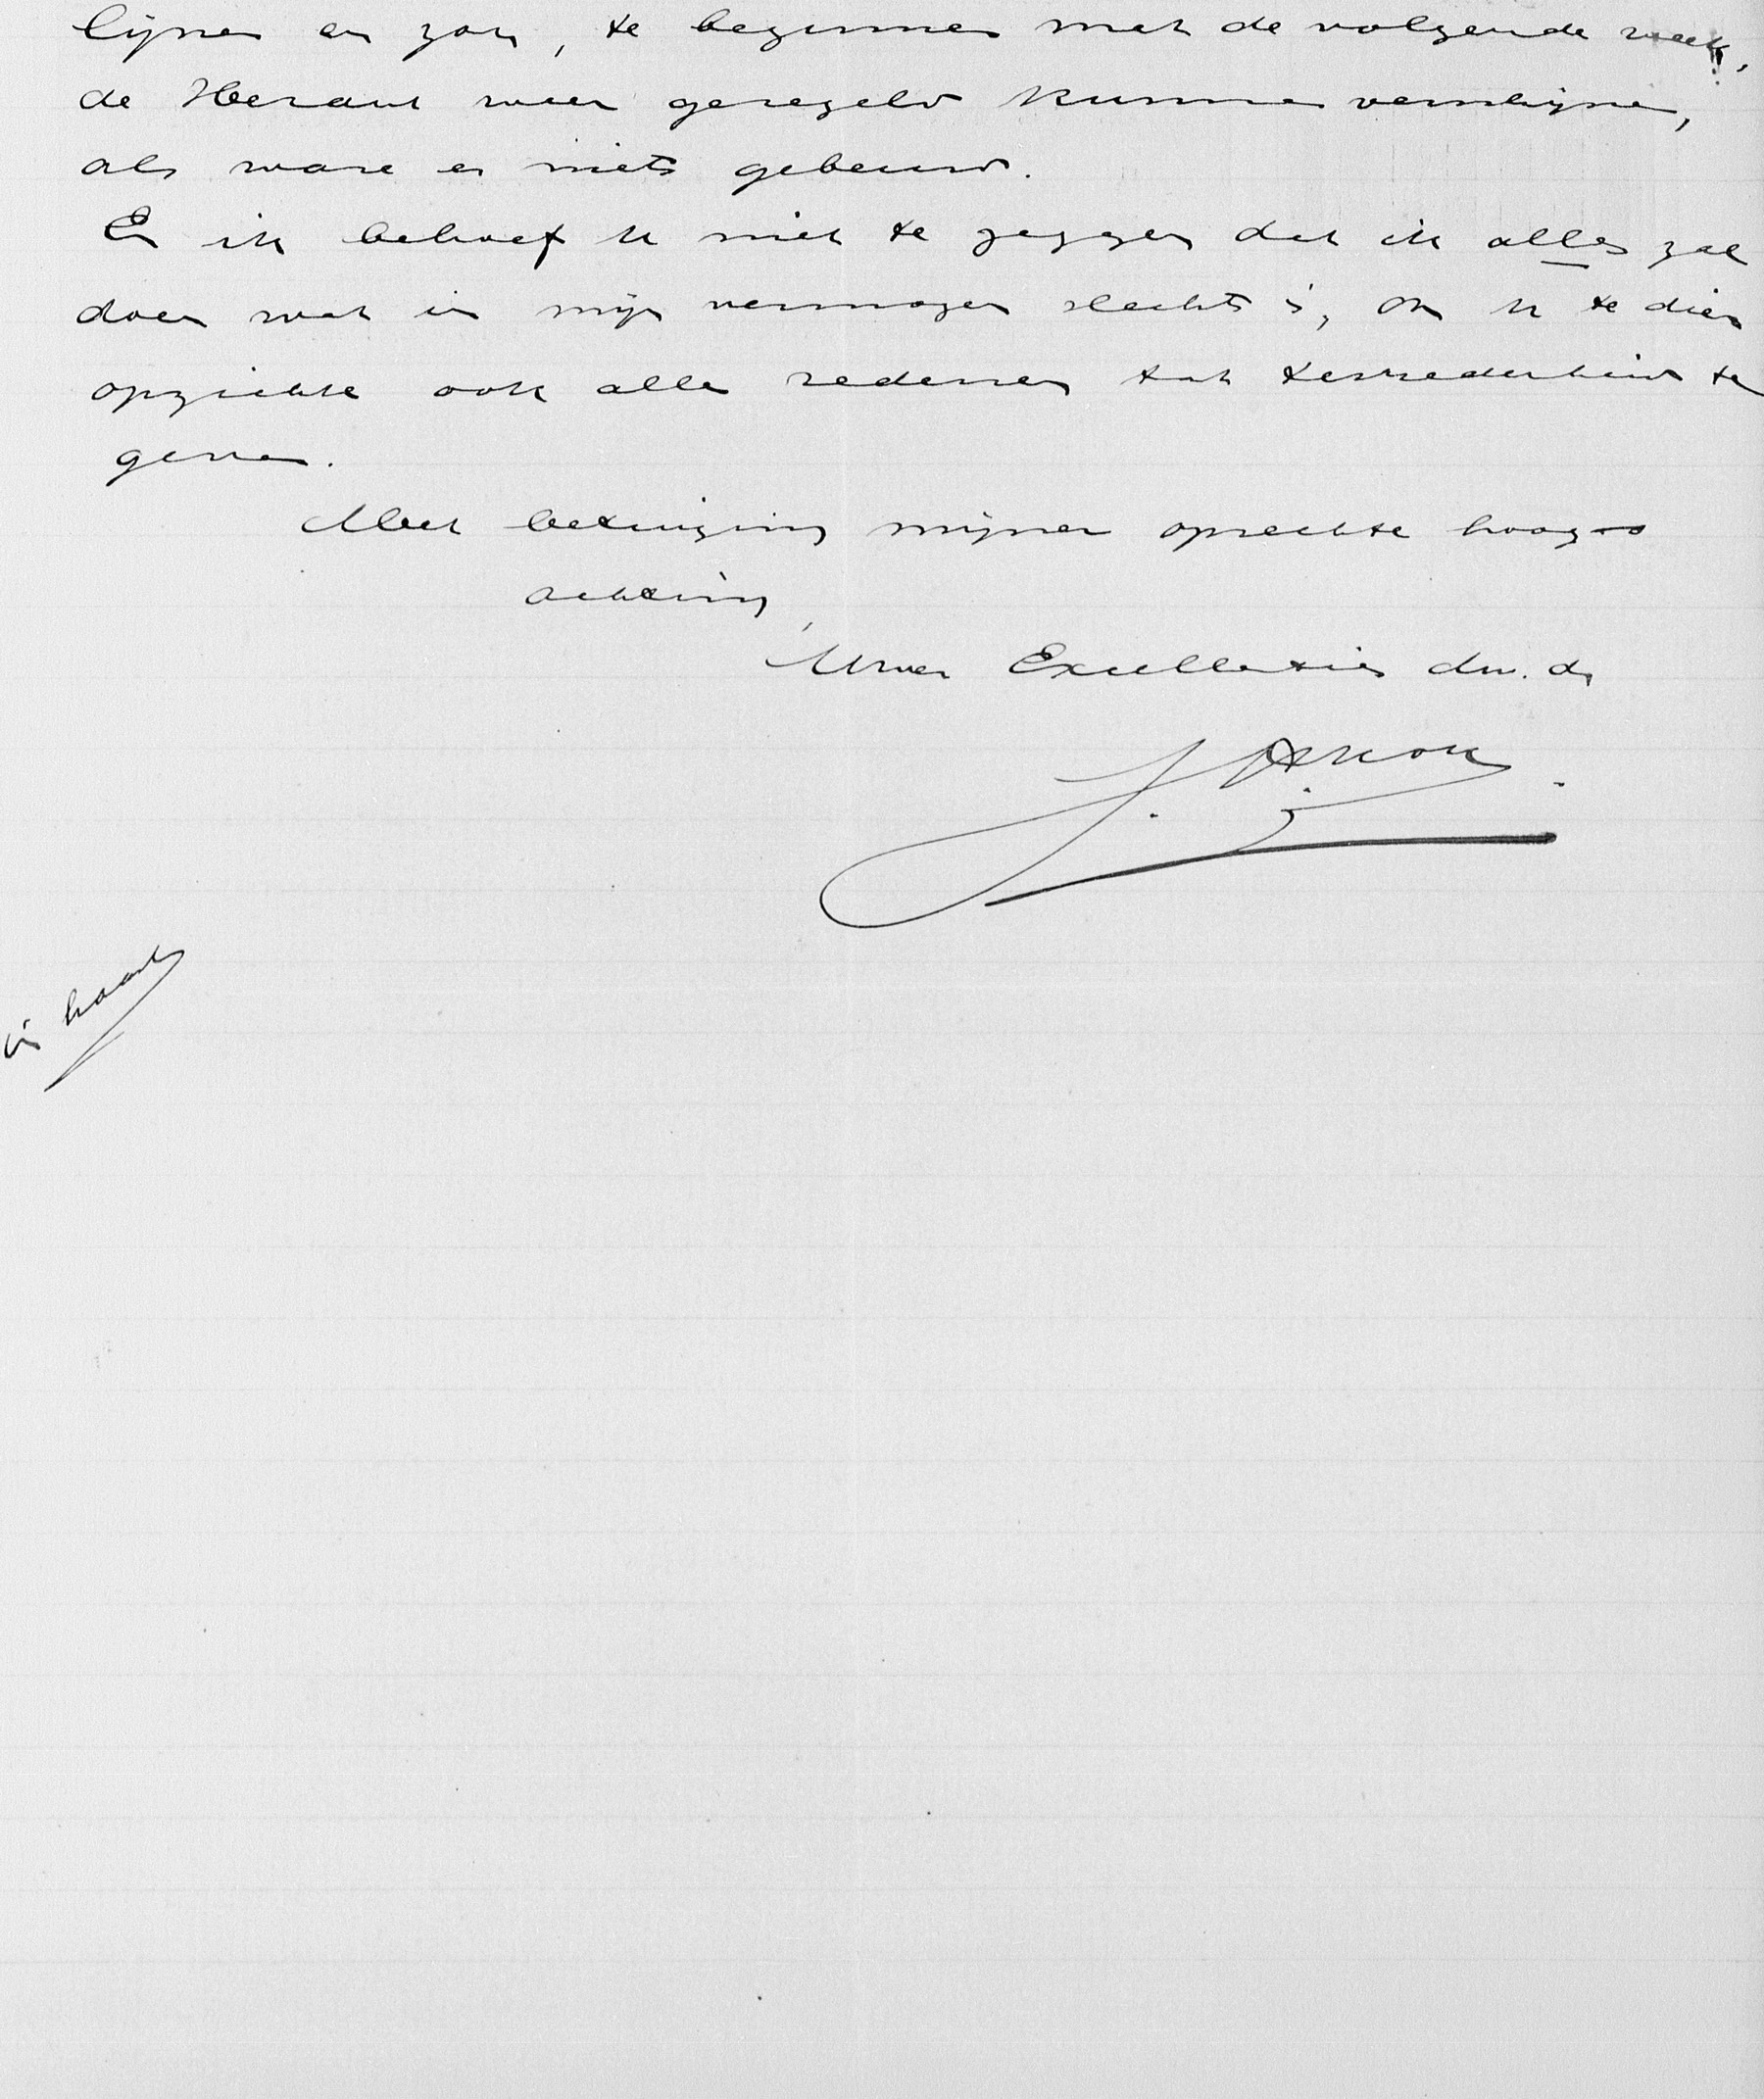 lijnen en zou, te beginnen met de volgende week,
de Heraut weer geregeld kunnen verschijnen,
als ware er niets gebeurd.
En ik behoef U niet te zeggen dat ik alles zal
doen wat in mijn vermogen slechts is, om U te dien
opzichte ook alle redenen tot tevredenheid te
geven.
Met betuiging mijner oprechte hoog-
achting,
Uwer Excellentie's dw. dr
in haast